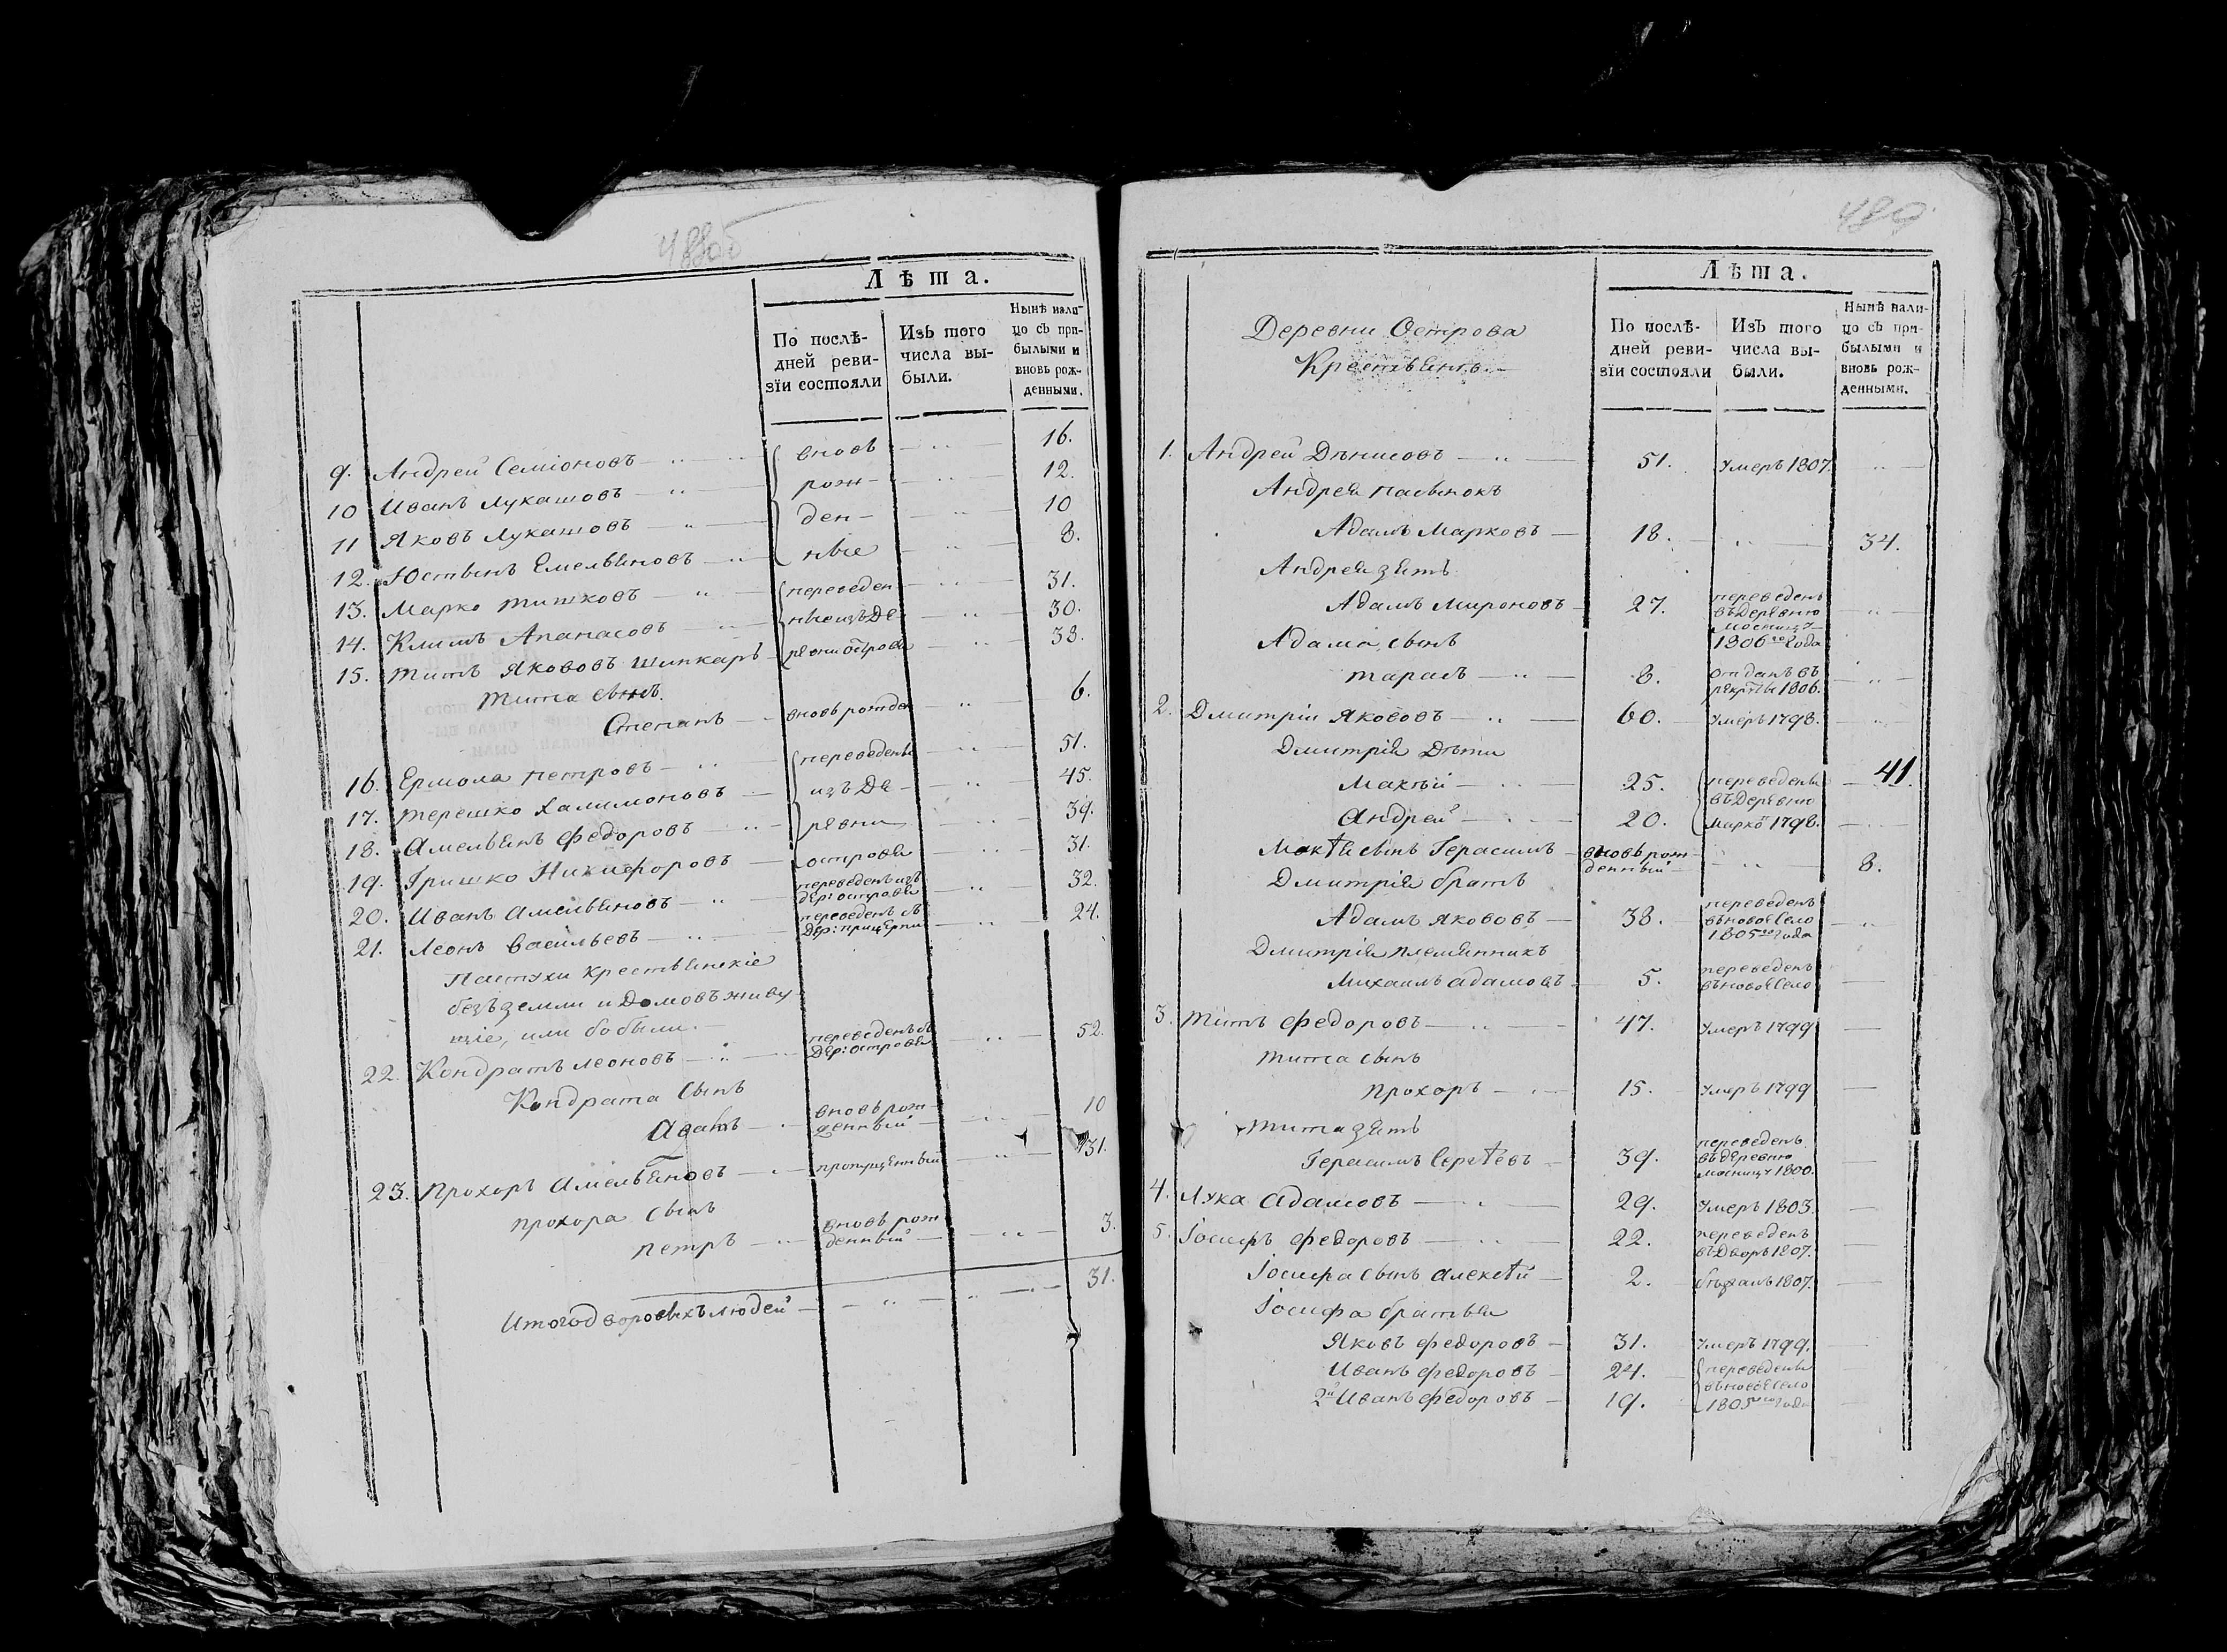 488об
Лѣта.
По послѣ-
дней реви-
зїи состояли
Изъ того
числа вы-
были.
Нынѣ нали-
цо съ при-
былыми и
вновь рож-
денными.
9. Андрей Семіоновъ — вновь — 16.
10 Иванъ Лукашовъ — рож- — 12.
11 Яковъ Лукашовъ — ден- — 10
12. Юстынъ Емельяновъ — ные — 8.
13. Марко Тишковъ — переведен — 31.
14. Климъ Апанасовъ — ные изъ де- — 30.
15. Титъ Якововъ Шинкаръ — ревни Острова — 38.
Тита сынъ
Степанъ — вновь рожден — 6.
16. Ермола Петровъ — переведены — 51.
17. Терешко Халимоновъ — изъ де- — 45.
18. Амельянъ Федоровъ — ревни — 39.
19. Гришко Никифоровъ — острова — 31.
20. Иванъ Амельяновъ — переведенъ изъ дер: острова — 32.
21. Леонъ Васильевъ — переведенъ съ дер: — 24.
Пастухи крестьянскіе
безъ земли и домовъ живу
щіе, или бобыли.—
22. Кондратъ Леоновъ — переведенъ съ дер: острова — 52.
Кондрата сынъ
— вновь рож- денный — 10
23. Прохоръ Амельяновъ — пропущенный — 31.
Прохора сынъ
Петръ — вновь рож денный — 3.
Итого дворовыхъ людей — 31.
489.
Деревни Острова
Крестьянъ.—
Лѣта.
По послѣ-
дней реви-
зїи состояли
Изъ того
числа вы-
были.
Нынѣ нали-
цо съ при-
былыми и
вновь рож-
денными.
1. Андрей Дѣнисовъ — 51. умеръ 1807.
Андрея пасынокъ
Адамъ Марковъ — 18. — 34.
Андрея зять
Адамъ Мироновъ — 27. переведенъ въ деревню 1806го года
Адама сынъ
Тарасъ — 8. отданъ въ рекруты 1806.
2. Дмитрій Якововъ — 60. умеръ 1798.
Дмитрія дѣти
Макѣй — 25. переведены — 41.
въ деревню
Андрей — 20. 1798.
Макѣя сынъ Герасимъ — вновь рож- денный — 8.
Дмитрія братъ
Адамъ Якововъ — 38. переведенъ въ новое село 1805го года
Дмитрія племянникъ
Михаилъ Адамовъ — 5. переведенъ въ новое село
3. Титъ Федоровъ — 47. умеръ 1799
Тита сынъ
Прохоръ — 15. умеръ 1799
Тита зять
Герасимъ Сергѣевъ — 39. переведенъ въ деревню 1800.
4. Лука Адамовъ — 29. умеръ 1803.
5. Іосифъ Федоровъ — 22. переведенъ въ дворъ 1807.
Іосифа сынъ Алексѣй — 2. бѣжалъ 1807.
Іосифа братья
Яковъ Федоровъ — 31. умеръ 1799.
Иванъ Федоровъ — 24. переведены
въ новое село
2й Иванъ Федоровъ — 19. 1805го года